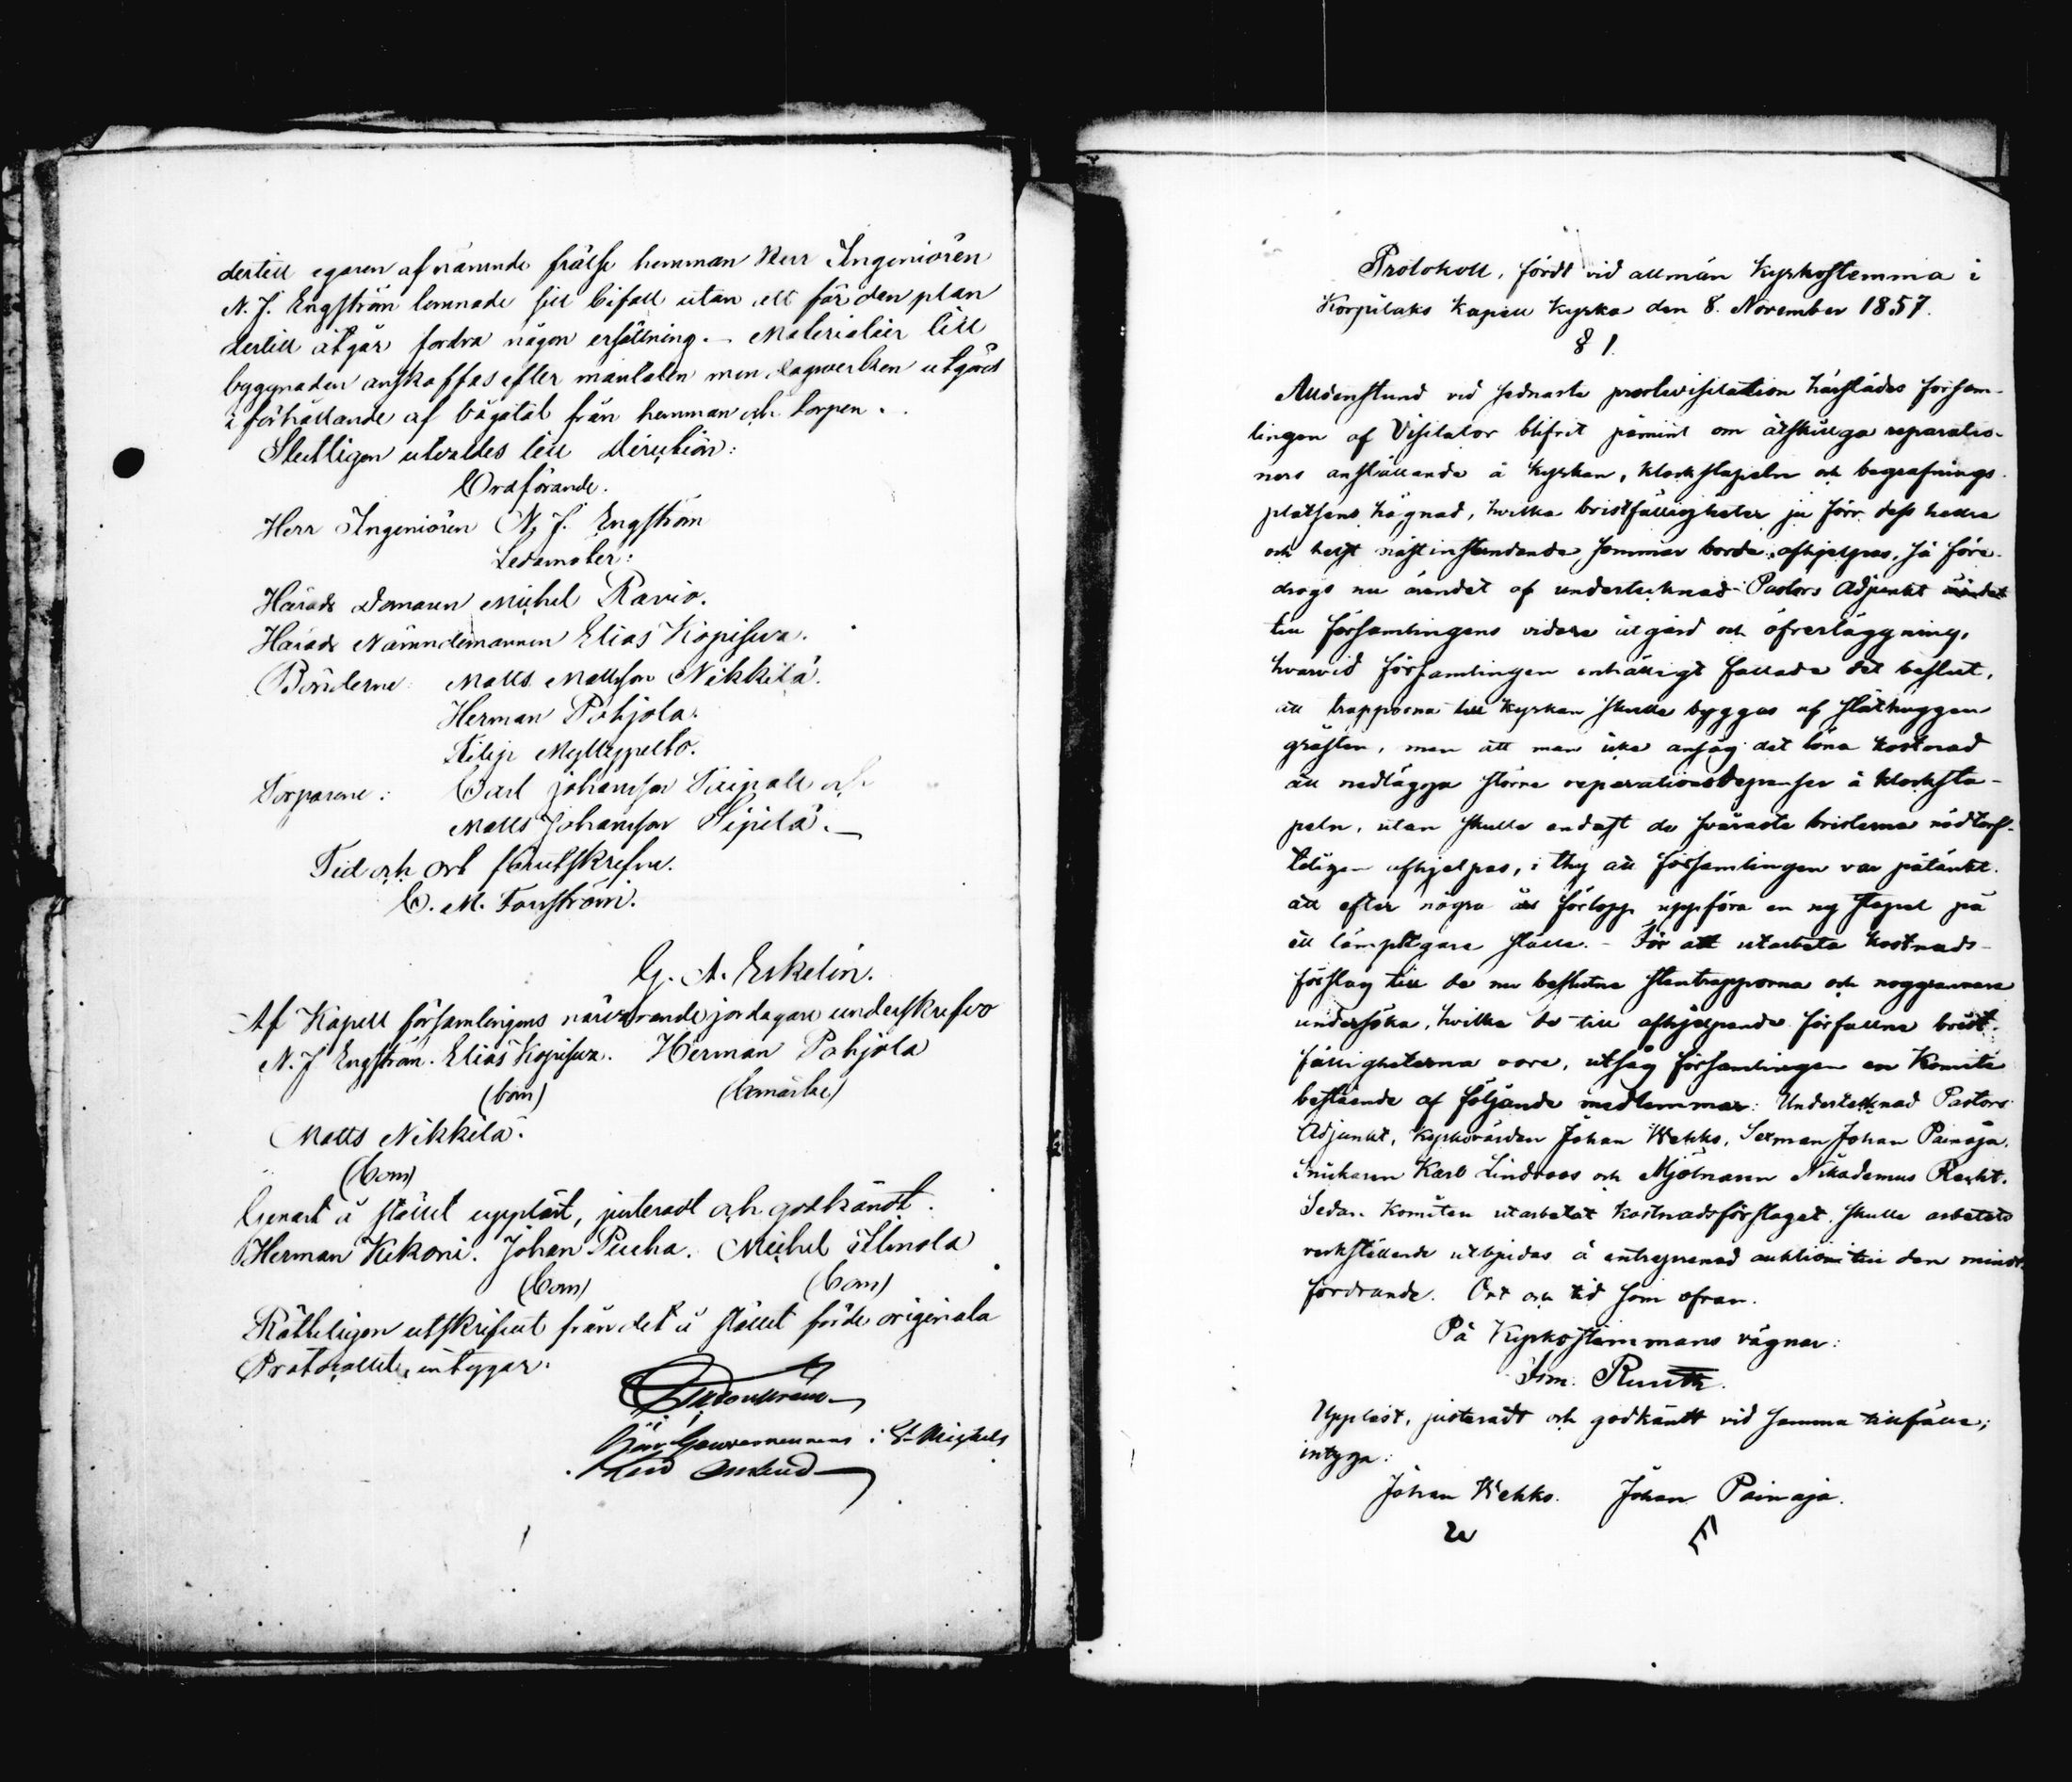 dertill egaren af nämnde frälse hemman Herr Ingeniören
N. J. Engström lemnade sitt bifall utan att för den plan
dertill åtgår fordra någon ersättning. – Materialier till
byggnaden anskaffas efter mantalen men dagsverken utgöres
i förhållande af bågatal från hemman och torpen.
Slutligen utvaldes till direction:
Ordförande.
Herr Ingeniören N. J. Engström
Ledamoter:
Härads Domaren Michel Ravio.
Härads Nämndemannen Elias Kopiswa.
Bönderne Matts Mattsson Nikkilä.
Herman Pohjola.
Filip Myllypelto.
Torparene: Carl Johansson och
Matts Johansson Sipilä. –
Tid och ort förutskrefne.
C. M. Forsström.
G. A. Eskelin.
Af Kapell församlingens närvarande jordagare underskrefvo
N. J. Engström. Elias Kopiswa. Herman Pohjola
(bom) (bomärke)
Matts Nikkilä.
(bom)
Genast å stället uppläst, justeradt och godkändt.
Herman Kekoni. Johan Pucha. Michel Ilmola
(bom) (bom)
Rätteligen utskrifvit från det å stället förde originala
Protocollet, intygar.
i St Michels
Protokoll, fördt vid allmän Kyrkostemma i
Korpilaks Kapell Kyrka den 8. November 1857.
§ 1.
Alldenstund vid sednaste prostvisitation härstädes försam-
lingen af Visitator blifvit påmint om åtskilliga reparatio-
ners anställande å kyrkan, klockstapeln och begrafnings-
platsens hägnad, hvilka bristfälligheter ju förr dess hellre
och helst nästinstundande sommar borde afhjelpas, så före-
drogs nu ärendet af undertecknad Pastors Adjunkt ärendet
till församlingens vidare åtgärd och öfverläggning,
hvarvid församlingen enhälligt fattade det beslut,
att trapporna till kyrkan skulle byggas af släthuggen
gråsten, men att man icke ansåg det löna kostnad
att nedlägga större reparationsdepenser å klocksta-
peln, utan skulle endast de svåraste bristerna nödtorf-
teligen afhjelpas, i thy att församlingen var påtänkt
att efter några års förlopp uppföra en ny stapel på
ett lämpligare ställe. – För att utarbeta kostnads-
förslag till de nu beslutna stentrapporna och noggrannare
undersöka, hvilka de till afhjelpande förfallna brist-
fälligheterna vore, utsåg församlingen en Komité
bestående af följande medlemmar: Undertecknad Pastors
Adjunkt, Kyrkovärden Johan Wehko, Sexman Johan Painaja,
Snickaren Karl Lindroos och Mjölnaren Nikademus Raeht.
Sedan Komiten utarbetat kostnadsförslaget, skulle arbetets
verkställande utbjudas å entreprenad auktion till den minst
fordrande. Ort och tid som ofvan.
På Kyrkostemmans vägnar:
Sim. Ruuth.
Uppläst, justeradt och godkändt vid samma tillfälle;
intyga:
Johan Wehko. Johan Painaja.